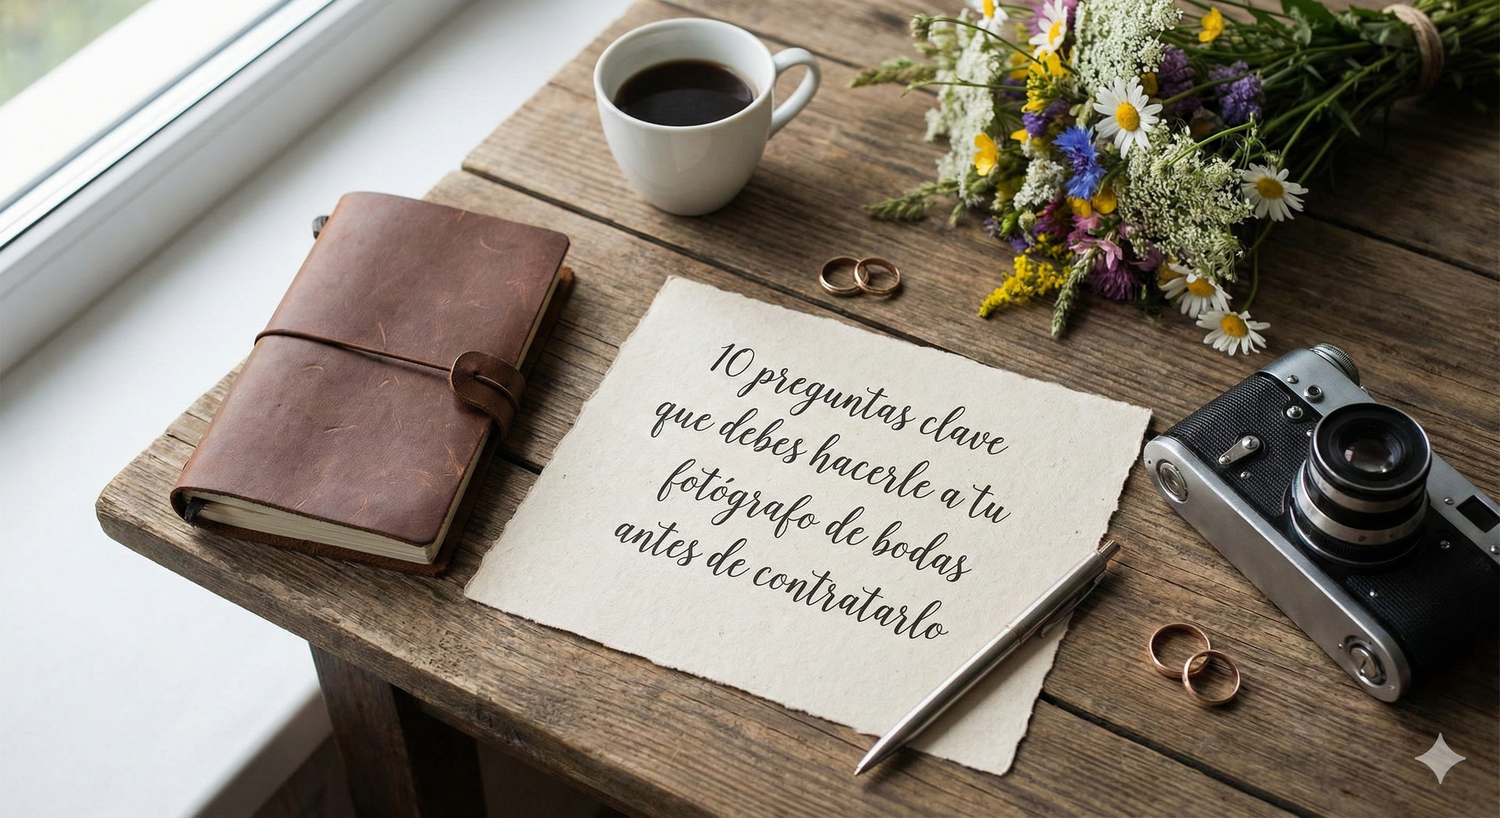 10 preguntas clave
que debes hacerle a tu
fotógrafo de bodas
antes de contratarlo